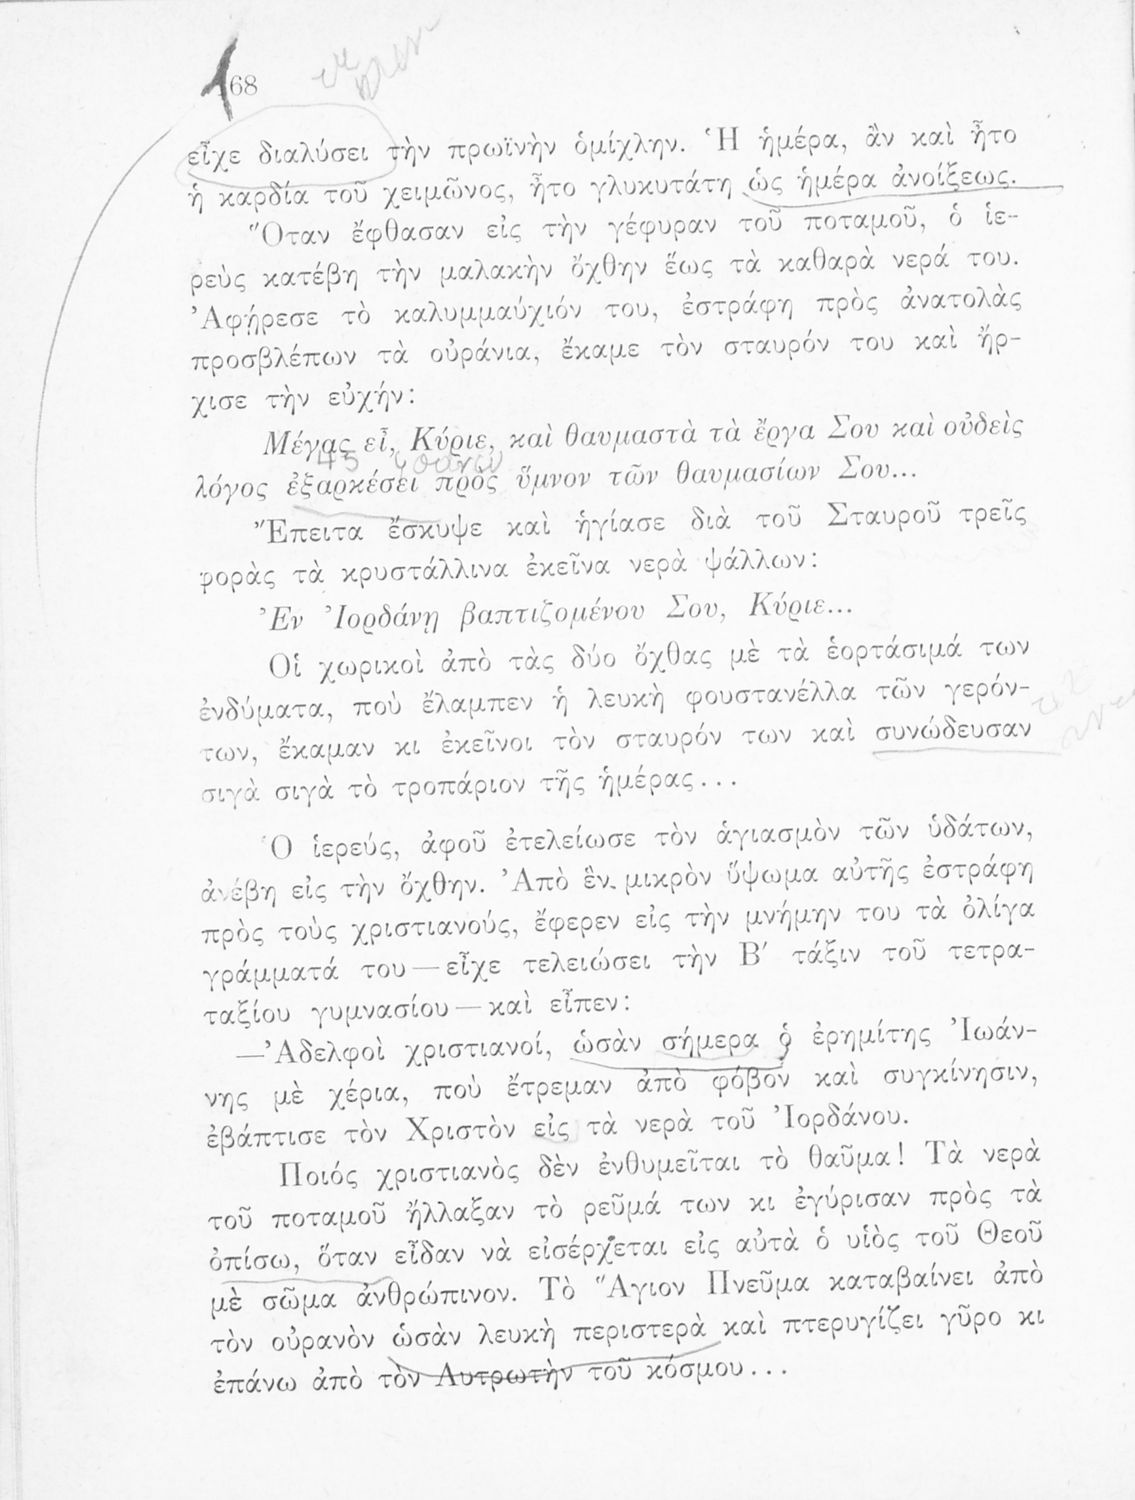 168
εἶχε διαλύσει τὴν πρωϊνὴν ὁμίχλην. Ἡ ἡμέρα, ἂν καὶ ἦτο
ἡ καρδία τοῦ χειμῶνος, ἦτο γλυκυτάτη ὡς ἡμέρα ἀνοίξεως.
Ὅταν ἔφθασαν εἰς τὴν γέφυραν τοῦ ποταμοῦ, ὁ ἱε-
ρεὺς κατέβη τὴν μαλακὴν ὄχθην ἕως τὰ καθαρὰ νερά του.
Ἀφῄρεσε τὸ καλυμμαύχιόν του, ἐστράφη πρὸς ἀνατολὰς
προσβλέπων τὰ οὐράνια, ἔκαμε τὸν σταυρόν του καὶ ἤρ-
χισε τὴν εὐχήν:
Μέγας εἶ, Κύριε, καὶ θαυμαστὰ τὰ ἔργα Σου καὶ οὐδεὶς
λόγος ἐξαρκέσει πρὸς ὕμνον τῶν θαυμασίων Σου...
Ἔπειτα ἔσκυψε καὶ ἡγίασε διὰ τοῦ Σταυροῦ τρεῖς
φορὰς τὰ κρυστάλλινα ἐκεῖνα νερὰ ψάλλων:
Ἐν Ἰορδάνῃ βαπτιζομένου Σου, Κύριε...
Οἱ χωρικοὶ ἀπὸ τὰς δύο ὄχθας μὲ τὰ ἑορτάσιμά των
ἐνδύματα, ποὺ ἔλαμπεν ἡ λευκὴ φουστανέλλα τῶν γερόν-
των, ἔκαμαν κι ἐκεῖνοι τὸν σταυρόν των καὶ συνώδευσαν
σιγὰ σιγὰ τὸ τροπάριον τῆς ἡμέρας...
Ὁ ἱερεύς, ἀφοῦ ἐτελείωσε τὸν ἁγιασμὸν τῶν ὑδάτων,
ἀνέβη εἰς τὴν ὄχθην. Ἀπὸ ἓν μικρὸν ὕψωμα αὐτῆς ἐστράφη
πρὸς τοὺς χριστιανούς, ἔφερεν εἰς τὴν μνήμην του τὰ ὀλίγα
γράμματά του — εἶχε τελειώσει τὴν Β′ τάξιν τοῦ τετρα-
ταξίου γυμνασίου — καὶ εἶπεν:
—Ἀδελφοὶ χριστιανοί, ὡσὰν σήμερα ὁ ἐρημίτης Ἰωάν-
νης μὲ χέρια, ποὺ ἔτρεμαν ἀπὸ φόβον καὶ συγκίνησιν,
ἐβάπτισε τὸν Χριστὸν εἰς τὰ νερὰ τοῦ Ἰορδάνου.
Ποιός χριστιανὸς δὲν ἐνθυμεῖται τὸ θαῦμα! Τὰ νερὰ
τοῦ ποταμοῦ ἤλλαξαν τὸ ρεῦμά των κι ἐγύρισαν πρὸς τὰ
ὀπίσω, ὅταν εἶδαν νὰ εἰσέρχεται εἰς αὐτὰ ὁ υἱὸς τοῦ Θεοῦ
μὲ σῶμα ἀνθρώπινον. Τὸ Ἅγιον Πνεῦμα καταβαίνει ἀπὸ
τὸν οὐρανὸν ὡσὰν λευκὴ περιστερὰ καὶ πτερυγίζει γῦρο κι
ἐπάνω ἀπὸ τὸν Λυτρωτὴν τοῦ κόσμου...